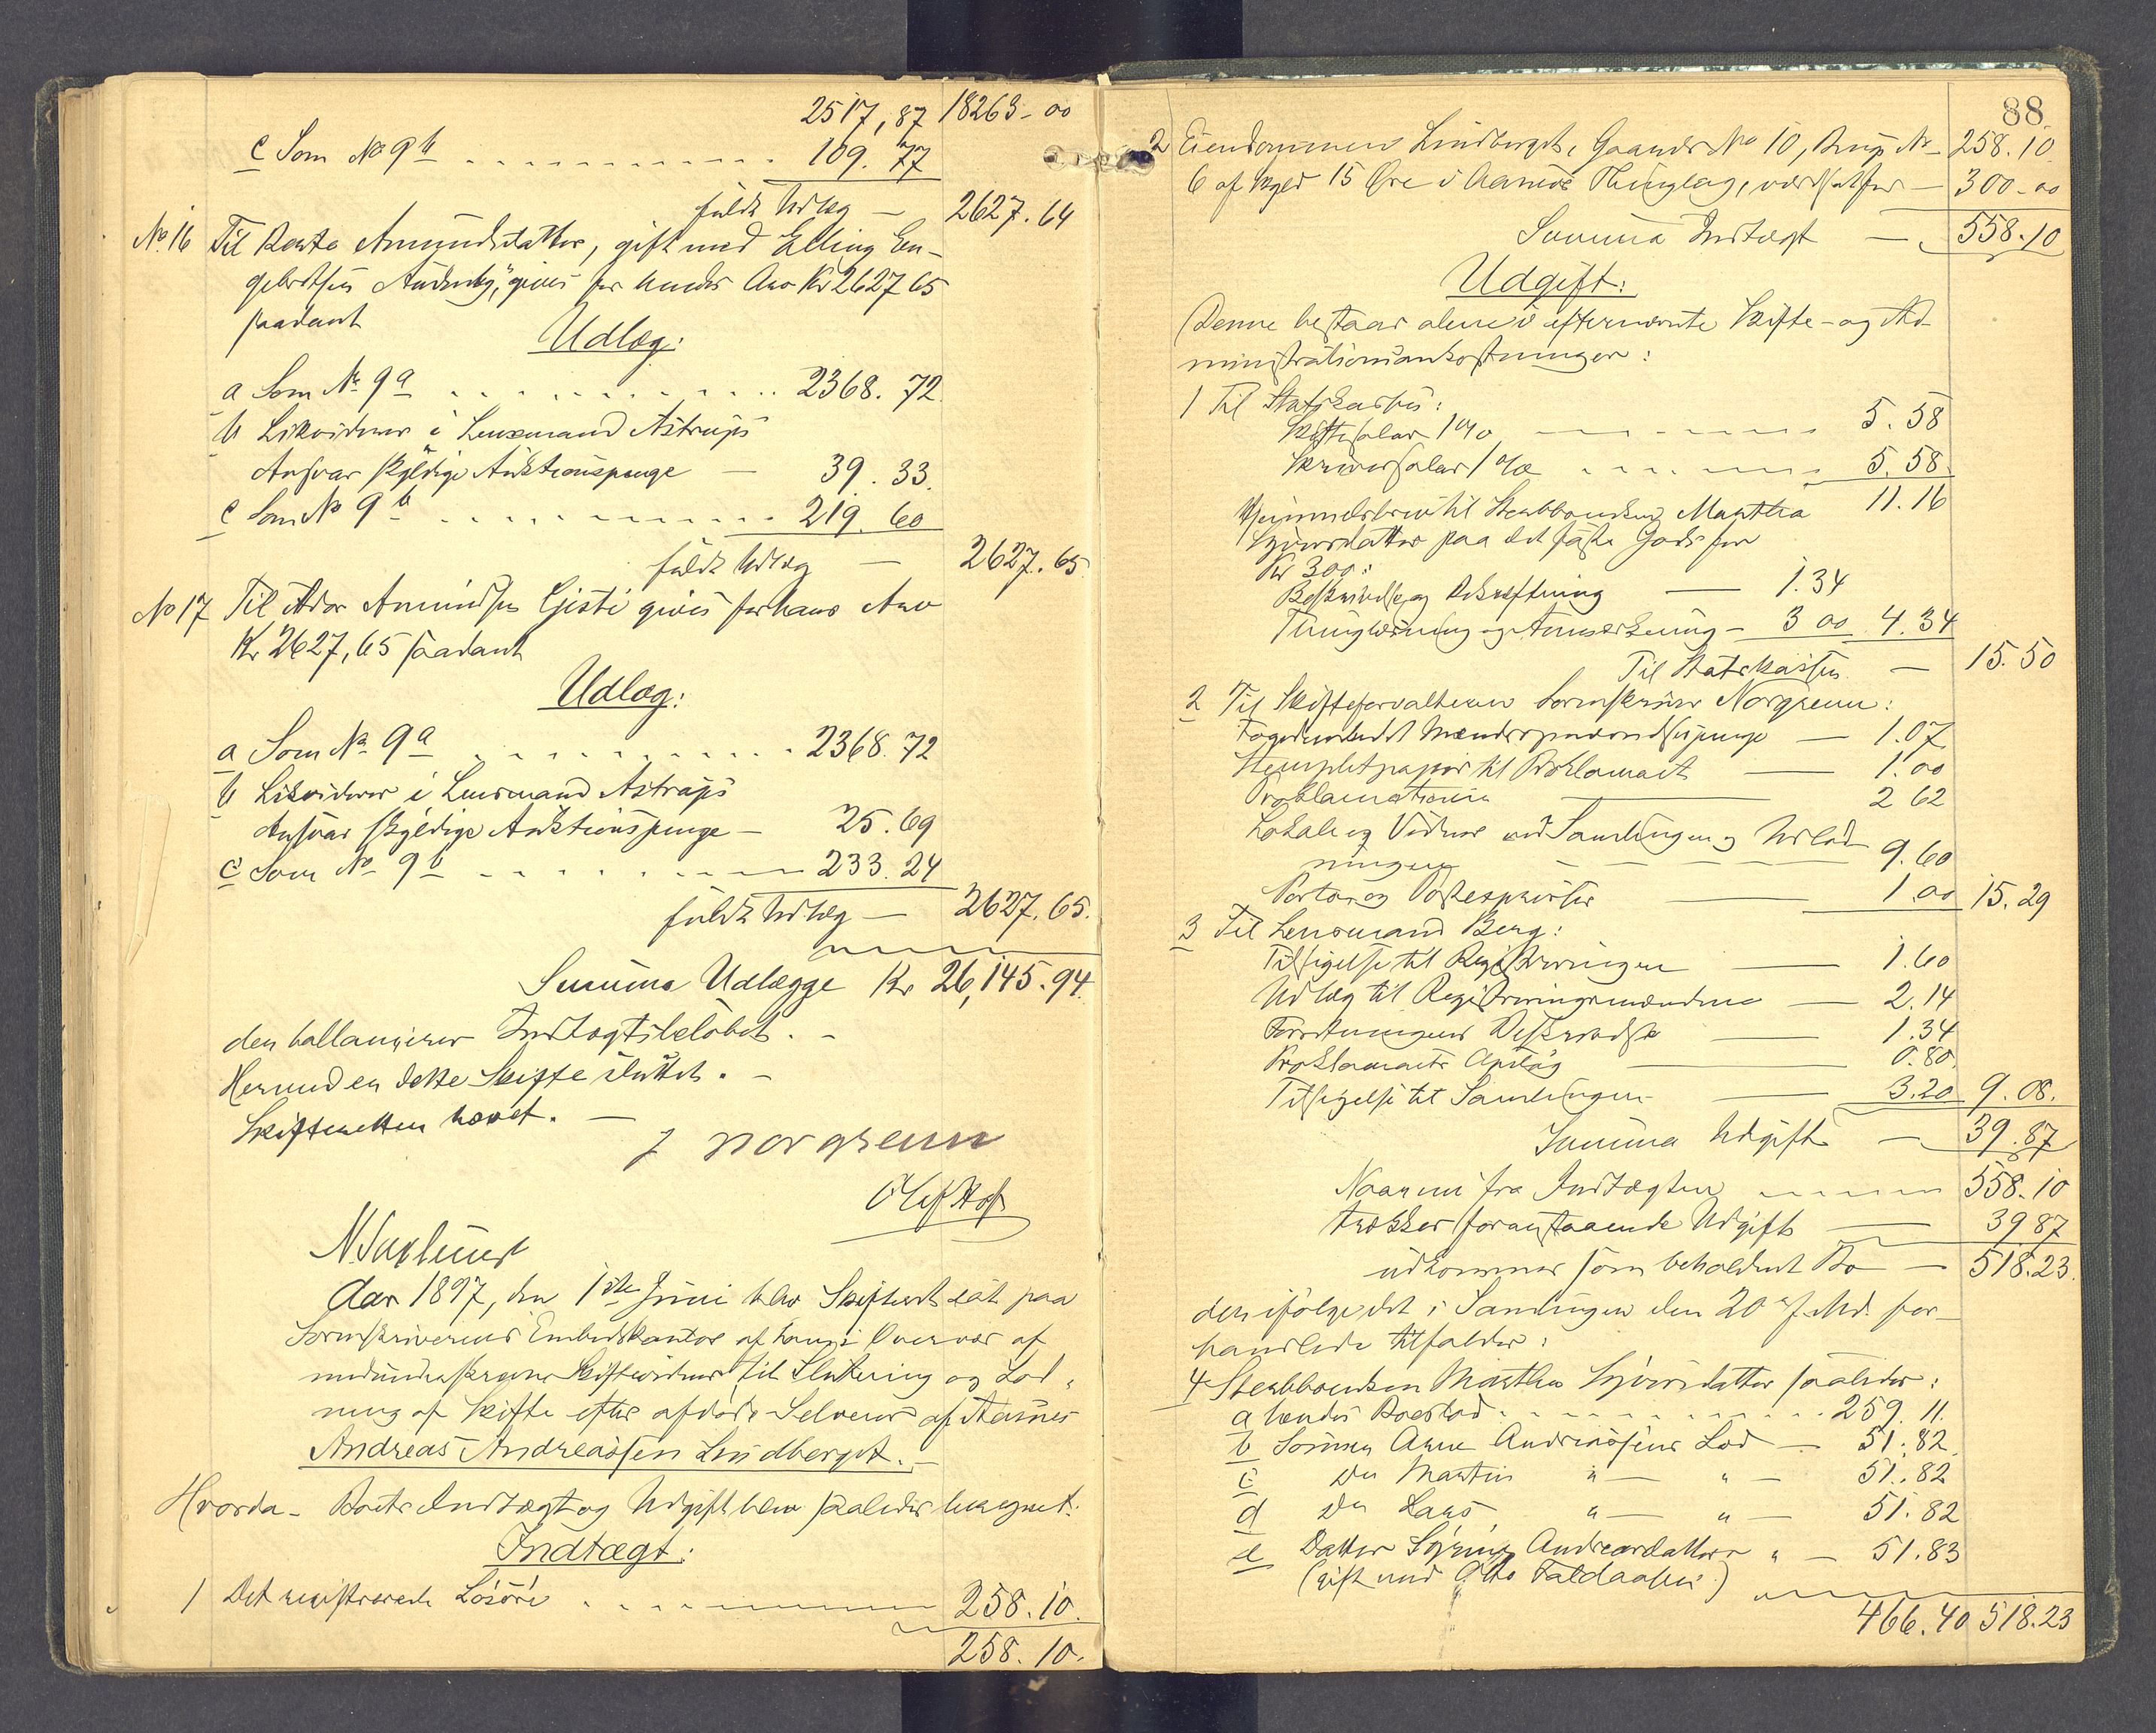 2517,87 18263-00
c Som No 9 b 109.77
fuldt Udlæg — 2627.64
No. 16 Til Marte Amundsdatter, gift med Elling En-
gebretsen Auderby, gives for hendes Arv Kr 2627 65
saadant
Udlæg:
a Som No 9 a 2368.72
b Likviderer i Lensmand Astrups
Ansvar skyldige Auktionspenge — 39.33.
c Som No 9 b 219.60
fuldt Udlæg — 2627.65
No 17 Til Amundsen gives for hans Arv
Kr 2627,65 saadant
Udlæg:
a Som No 9 a 2368.72
b Likviderer i Lensmand Astrups
Ansvar skyldige Auktionspenge — 25.69
c Som No 9 b 233.24
fuldt Udlæg — 2627.65.
Summa Udlægge Kr 26,145.94.
der ballancerer Indtægtsbeløbet. -
Hermed er dette Skifte sluttet. -
Skifteretten hævet. —
J Norgrenn
Olaf
N.
Aar 1897, den 1ste Juni blev Skifteret sat paa
Sorenskriverens Embedskontor af ham i Overvær af
medunderskrevne Skiftevidner til Slutning og Lod-
ning af Skifte efter afdøde Selveier af Aasnes
Andreas Andreassen Lindberget. -
Hvorda - Boets Indtægt og Udgift blev saaledes beregnet:
Indtægt:
1 Det registrerede Løsøre 258.10.
258.10.
88
2 Eiendommen Lindberget, Gaards No 10, Brugs Nr - 258.10
6 af Skyld 15 Øre i Aasnes Thinglag, værdsat for - 300-00
Summa Indtægt — 558.10
Udgift:
Denne bestaar alene i efternævnte Skifte- og Ad-
ministrationsomkostninger:
1 Til Statskassen:
Skiftesalær 1% 5.58
Skriversalær 1% 5.58
11.16
Hjemmelsbrev til Stervboenken Marthea
Syversdatter paa det faste Gods for
Kr 300:
Beskrivelse og Bekræftning — 1.34
Thinglæsning og Anmerkning - 3 00 4.34
Til Statskassen — 15.50
2 Til Skifteforvalteren Sorenskriver Norgrenn:
— 1.07
Stempletpapir til Proklamaet — 1.00
Proklamationen — 2 62
Lokale og Vidner ved Samlingen og Udlod-
ningen 9.60
Porto og — 1.00 15.29
3 Til Lensmand Berg:
Tilsigelse til Registreringen — 1.60
Udlæg til Registreringsmændene — 2.14
Forretningens Beskrivelse — 1.34
Proklamaets Opslag — 0.80.
Tilsigelse til Samlingen — 3.20 9.08.
Summa Udgift — 39.87
Naar nu fra Indtægten 558.10
trækkes foranstaaende Udgift — 39 87
udkommer som beholdent Bo — 518.23.
der ifølge det i Samlingen den 20 f. Md. for-
handlede tilfalder:
4 Stervboenken Marthea Syversdatter saaledes:
a hendes Boeslod 259.11.
b Sønnen Arne Andreassens Lod — 51.82.
c Do Martin " — " — 51.82
d Do Lars " — " — 51.82
e Datter Andreasdatters " — 51.83
(gift med Otto Faldaasen)
466.40 518.23